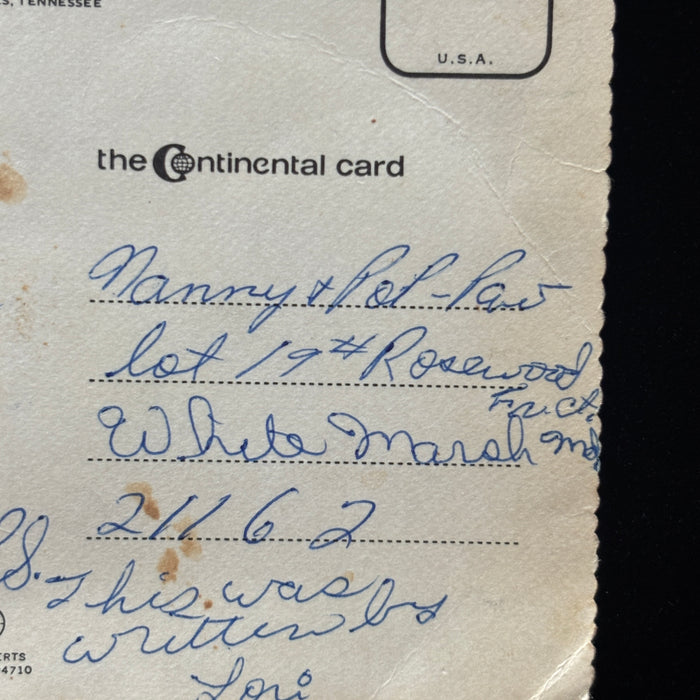 S, TENNESSEE
U.S.A.
the Continental card
Nanny & Pop-Paw
lot 19# Rosewood
Ct.
White Marsh Md
21162
P.S. This was
written by
Lori
ERTS
4710